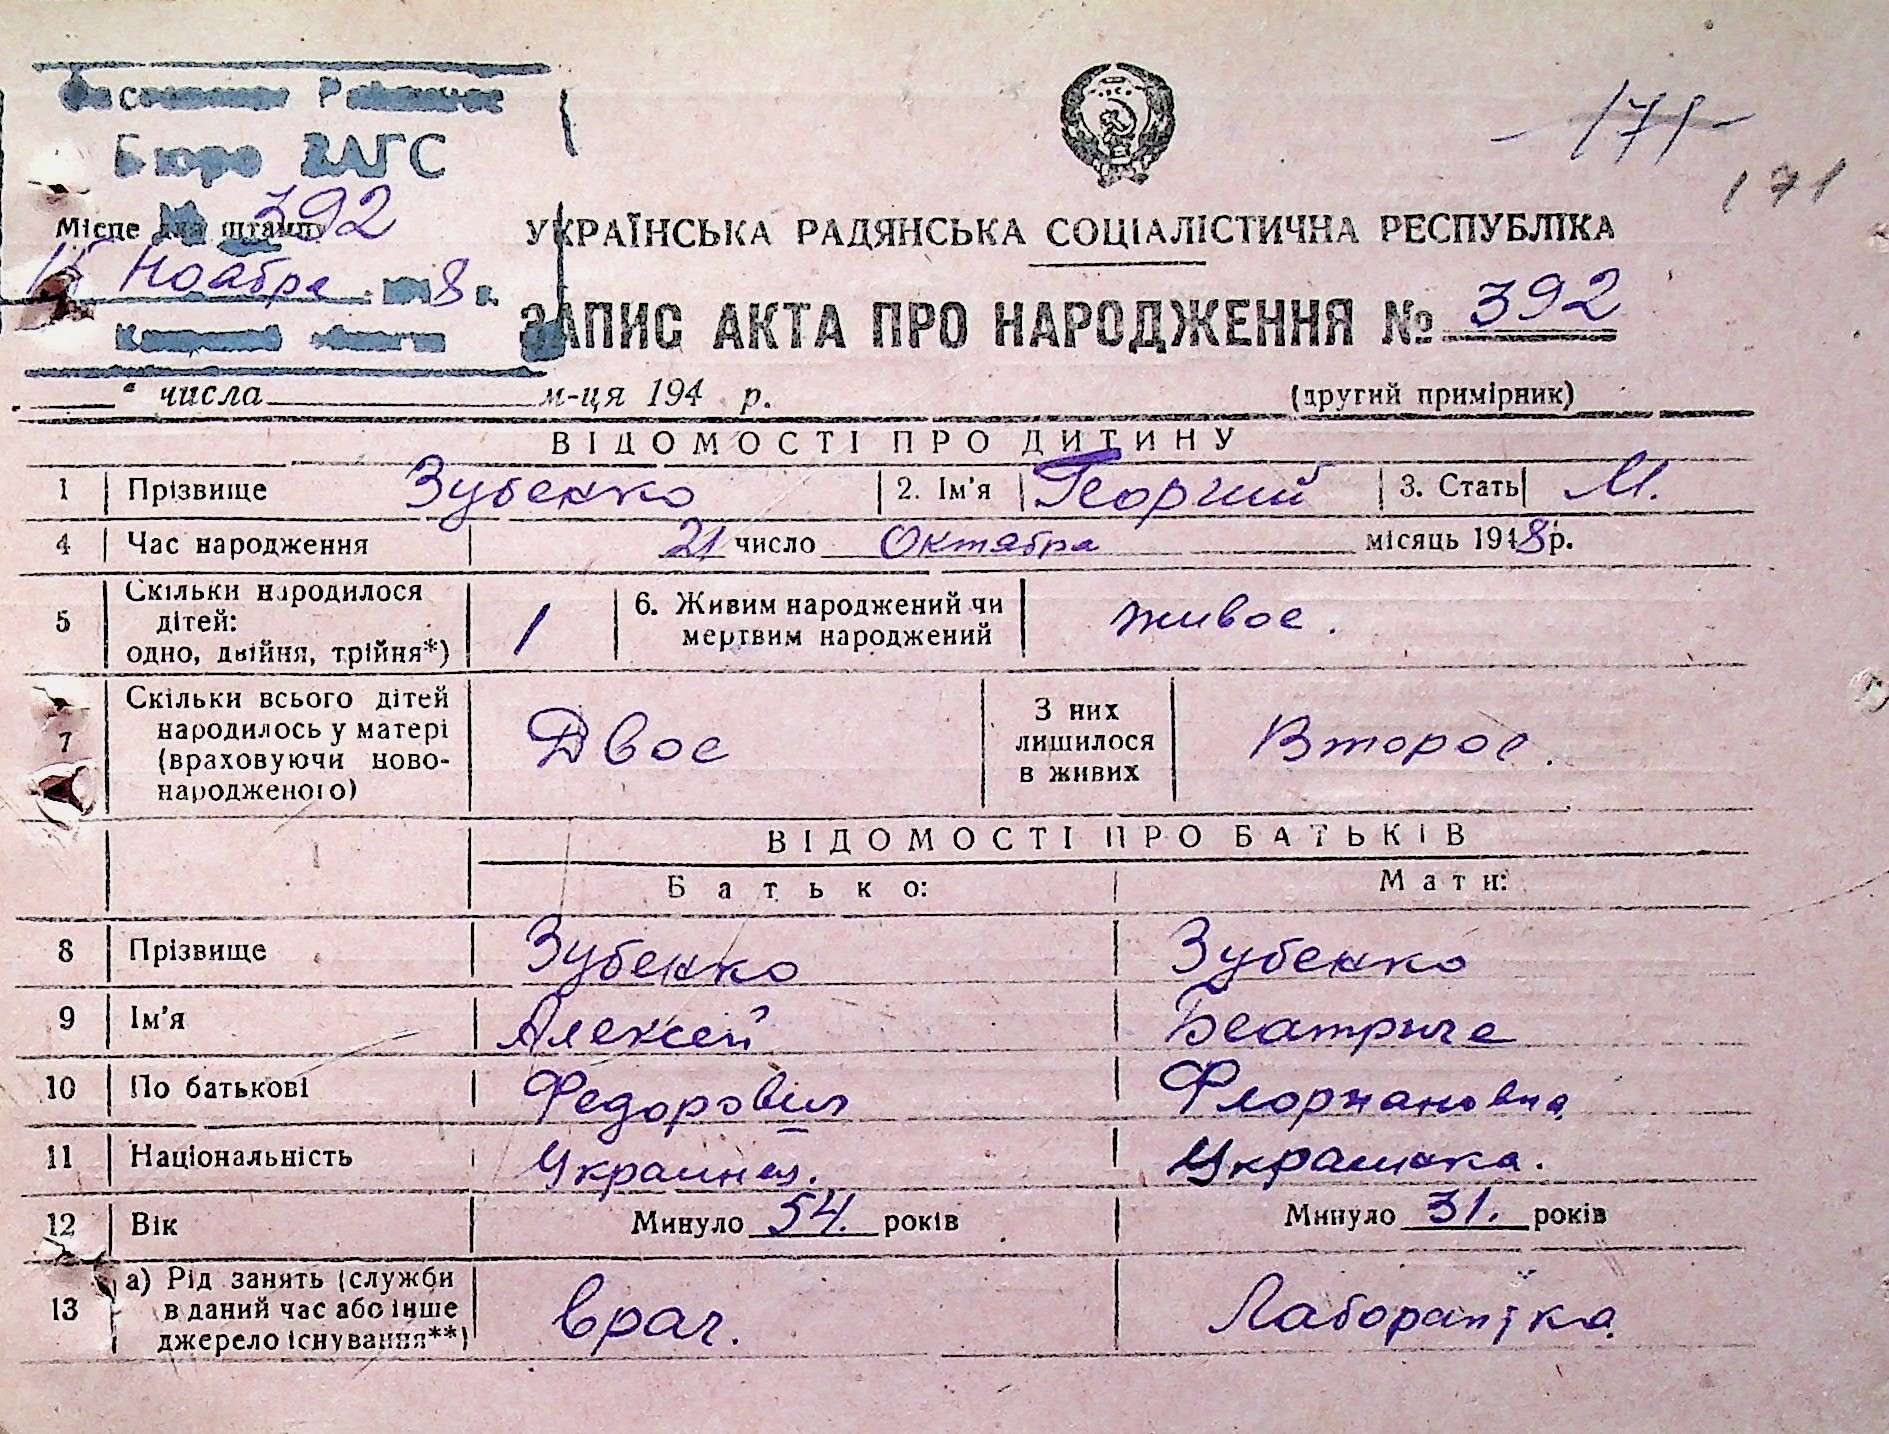 Бюро ЗАГС
-171-
171
Місце для штампу
№ 392
УКРАЇНСЬКА РАДЯНСЬКА СОЦІАЛІСТИЧНА РЕСПУБЛІКА
Ноабра 8 г.
ЗАПИС АКТА ПРО НАРОДЖЕННЯ № 392
області
" числа м-ця 194 р. (другий примірник)
ВІДОМОСТІ ПРО ДИТИНУ
1 Прізвище Зубенко 2. Ім'я Георгий 3. Стать М.
4 Час народження 21 число Октября місяць 1948 р.
5 Скільки народилося
дітей:
одно, двійня, трійня*) 1 6. Живим народжений чи
мертвим народжений живое.
7 Скільки всього дітей
народилось у матері
(враховуючи ново-
народженого) Двое З них
лишилося
в живих Второе.
ВІДОМОСТІ ПРО БАТЬКІВ
Батько: Мати:
8 Прізвище Зубенко Зубенко
9 Ім'я Алексей Беатриче
10 По батькові Федорович Флориановна
11 Національність Украинец. Украинка.
12 Вік Минуло 54. років Минуло 31. років
13 а) Рід занять (служби
в даний час або інше
джерело існування**) врач. Лаборантка.